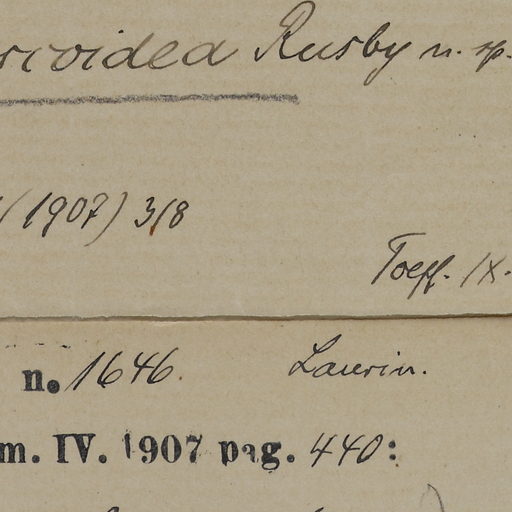 ricoidea Rusby n. sp.
(1907) 318
Toepf. IX.
n. 1646. Laurin.
m. IV. 1907 pag. 440: